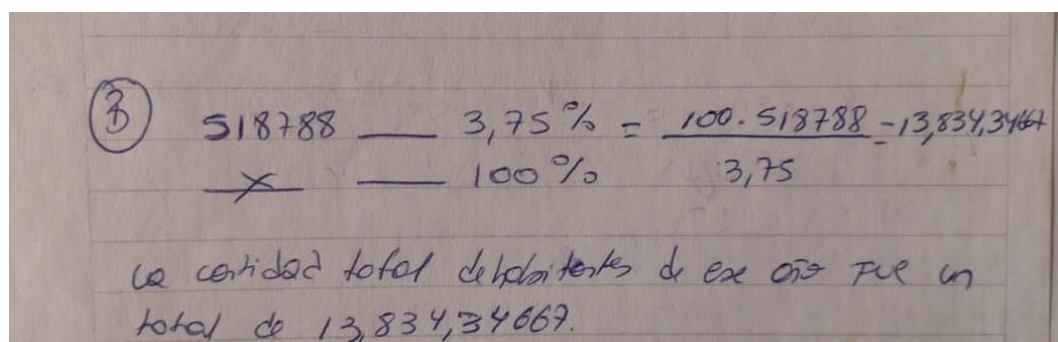 3) 518788 — 3,75% = 100. 518788 = 13,834,34667
x — 100% 3,75
La cantidad total de habitantes de ese año fue un
total de 13,834,34667.